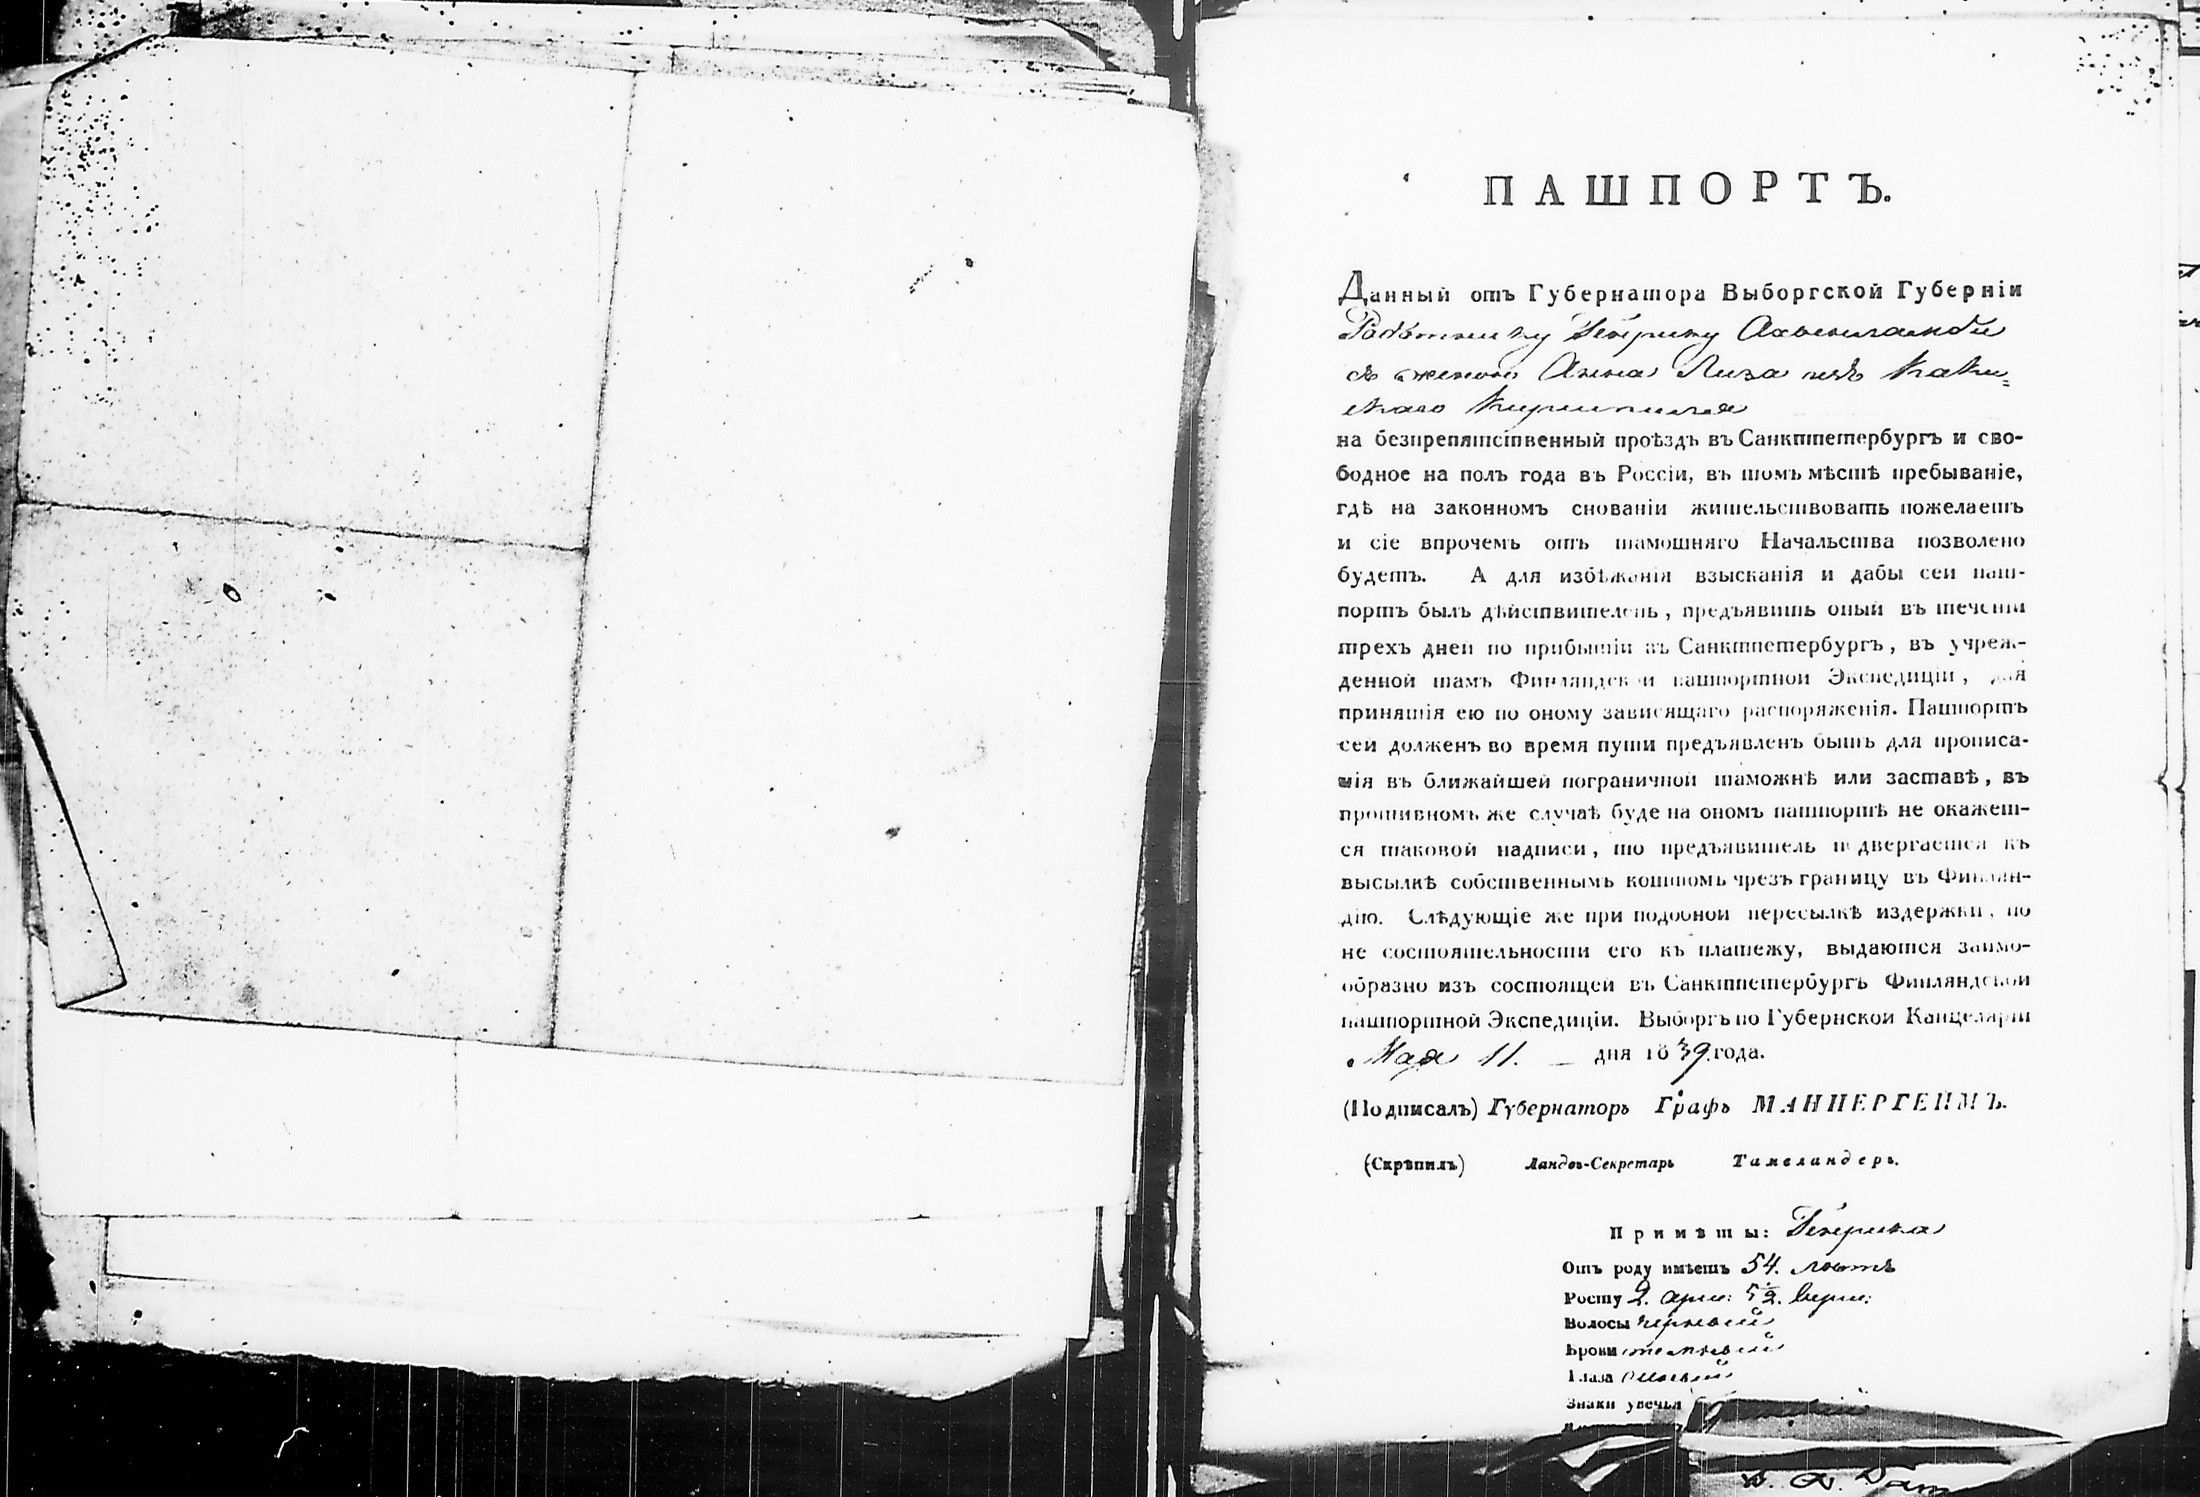 ПАШПОРТЪ.
Данный отъ Губернатора Выборгской Губерніи
Работнику Генрику
съ женою Анна Лиза изъ Каки=
скаго Киршпиля
на безпрепятственный проѣздъ въ Санктпетербургъ и сво-
бодное на полъ года въ Россіи, въ томъ мѣстѣ пребываніе,
гдѣ на законномъ снованіи жительствовать пожелаетъ
и сіе впрочемъ отъ тамошняго Начальства позволено
будетъ. А для избѣжанія взысканія и дабы сей паш-
портъ былъ дѣйствителенъ, предъявить оный въ теченіи
трехъ дней по прибытіи въ Санктпетербургъ, въ учреж-
денной тамъ Финляндской пашпортной Экспедиціи, для
принятія ею по оному зависящаго распоряженія. Пашпортъ
сей долженъ во время пути предъявленъ быть для прописа-
нія въ ближайшей пограничной таможнѣ или заставѣ, въ
противномъ же случаѣ буде на ономъ пашпортѣ не окажет-
ся таковой надписи, то предъявитель подвергается къ
высылкѣ собственнымъ коштомъ чрезъ границу въ Финлян-
дію. Слѣдующіе же при подобной пересылкѣ издержки, по
не состоятельности его къ платежу, выдаются заимо-
образно изъ состоящей въ Санктпетербургъ Финляндской
пашпортной Экспедиціи. Выборгъ по Губернской Канцеляріи
Мая 11. дня 1839 года.
(Подписалъ) Губернаторъ Графъ МАННЕРГЕЙМЪ.
(Скрѣпилъ) Ландъ-Секретарь Тамеландеръ.
Примѣты: Генрика
Отъ роду имѣетъ 54. лѣтъ
Росту 2. арш: 5½. верш:
Волосы черный
Брови темный
Глаза
Знаки увечья